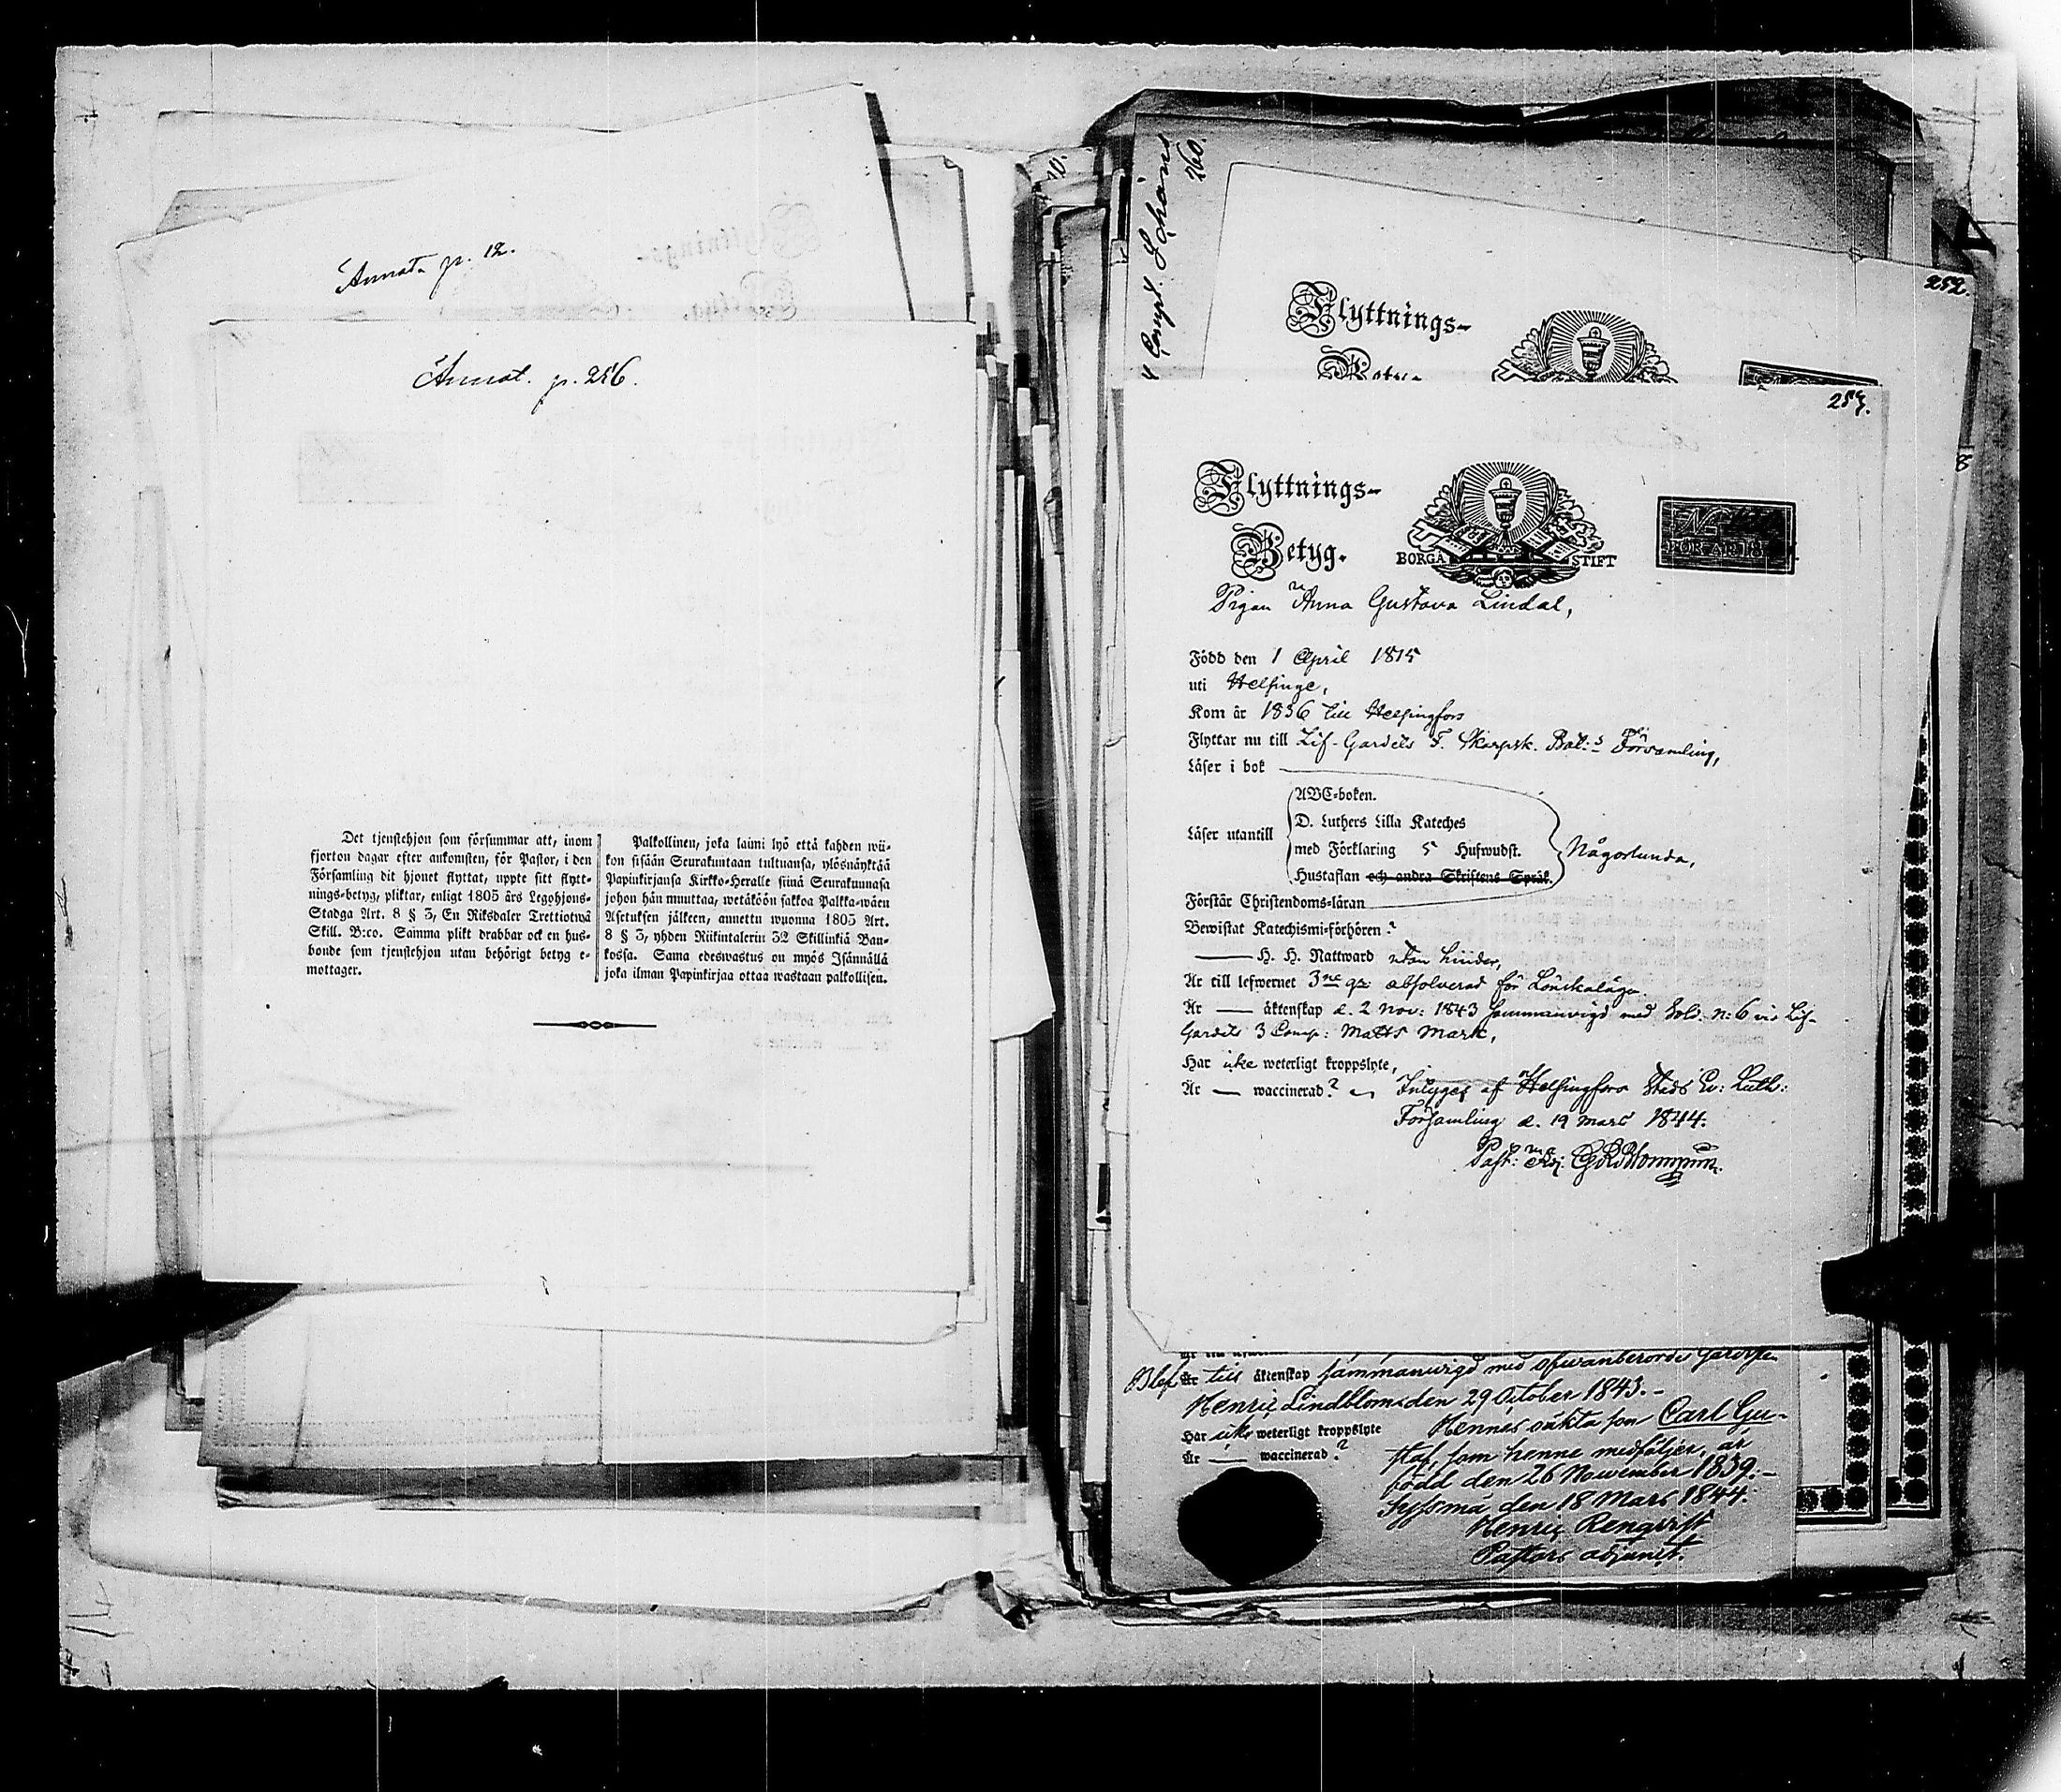 Annot. p. 12.
Annot. p. 256.
Det tjenstehjon som försummar att, inom
fjorton dagar efter ankomsten, för Pastor, i den
Församling dit hjonet flyttat, uppte sitt flytt-
nings-betyg, pliktar, enligt 1805 års Legohjons-
Stadga Art. 8 § 3, En Riksdaler Trettiotwå
Skill. B:co. Samma plikt drabbar ock en hus-
bonde som tjenstehjon utan behörigt betyg e-
mottager.
Palkollinen, joka laimi lyö että kahden wii-
kon sisään Seurakuntaan tultuansa, ylösnäyktää
Papinkirjansa Kirkko-Heralle siinä Seurakunnasa
johon hän muuttaa, wetäköön sakkoa Palkka-wäen
Asetuksen jälkeen, annettu wuonna 1805 Art.
8 § 3, yhden Riikintalerin 32 Skillinkiä Ban-
kossa. Sama edeswastus on myös Isännällä
joka ilman Papinkirjaa ottaa wastaan palkollisen.
260.
252.
Flyttnings-
Betyg.
257.
Flyttnings-
Betyg.
BORGÅ STIFT
No
FÖR ÅR 18
Pigan Anna Gustava Lindal,
Född den 1 April 1815
uti Helsinge,
Kom år 1836 till Helsingfors
Flyttar nu till Lif-Gardets F. Skarpsk. Bat:s Församling,
Läser i bok
ABC-boken.
D. Luthers Lilla Kateches
Läser utantill
med Förklaring 5 Hufwudst.
Någorlunda,
Hustaflan och andra Skriftens Språk.
Förstår Christendoms-läran
Bewistat Katechismi-förhören ?
H. H. Nattward utan hinder,
Är till lefwernet 3ne gr: absolverad för Lönskaläge
Är äktenskap d. 2 Nov: 1843 sammanvigd med Sold. N:6 vid Lif-
Gardets 3 Comp: Matts Mark,
Har icke weterligt kroppslyte,
Är waccinerad? Intygas af Helsingfors Stads Ev: Luth:
Församling d. 19 Mars 1844.
Past: Adj:
Blef till äktenskap sammanwigd med ofwanberörde Gardisten
Henric Lindblom den 29 October 1843.-
Har icke weterligt kroppslyte Hennes oäkta son Carl Gu-
staf, som henne medföljer, är
Är waccinerad?
född den 26 November 1839.-
Sysmä den 18 Mars 1844.
Henric Renqvist
Pastors adjunct.